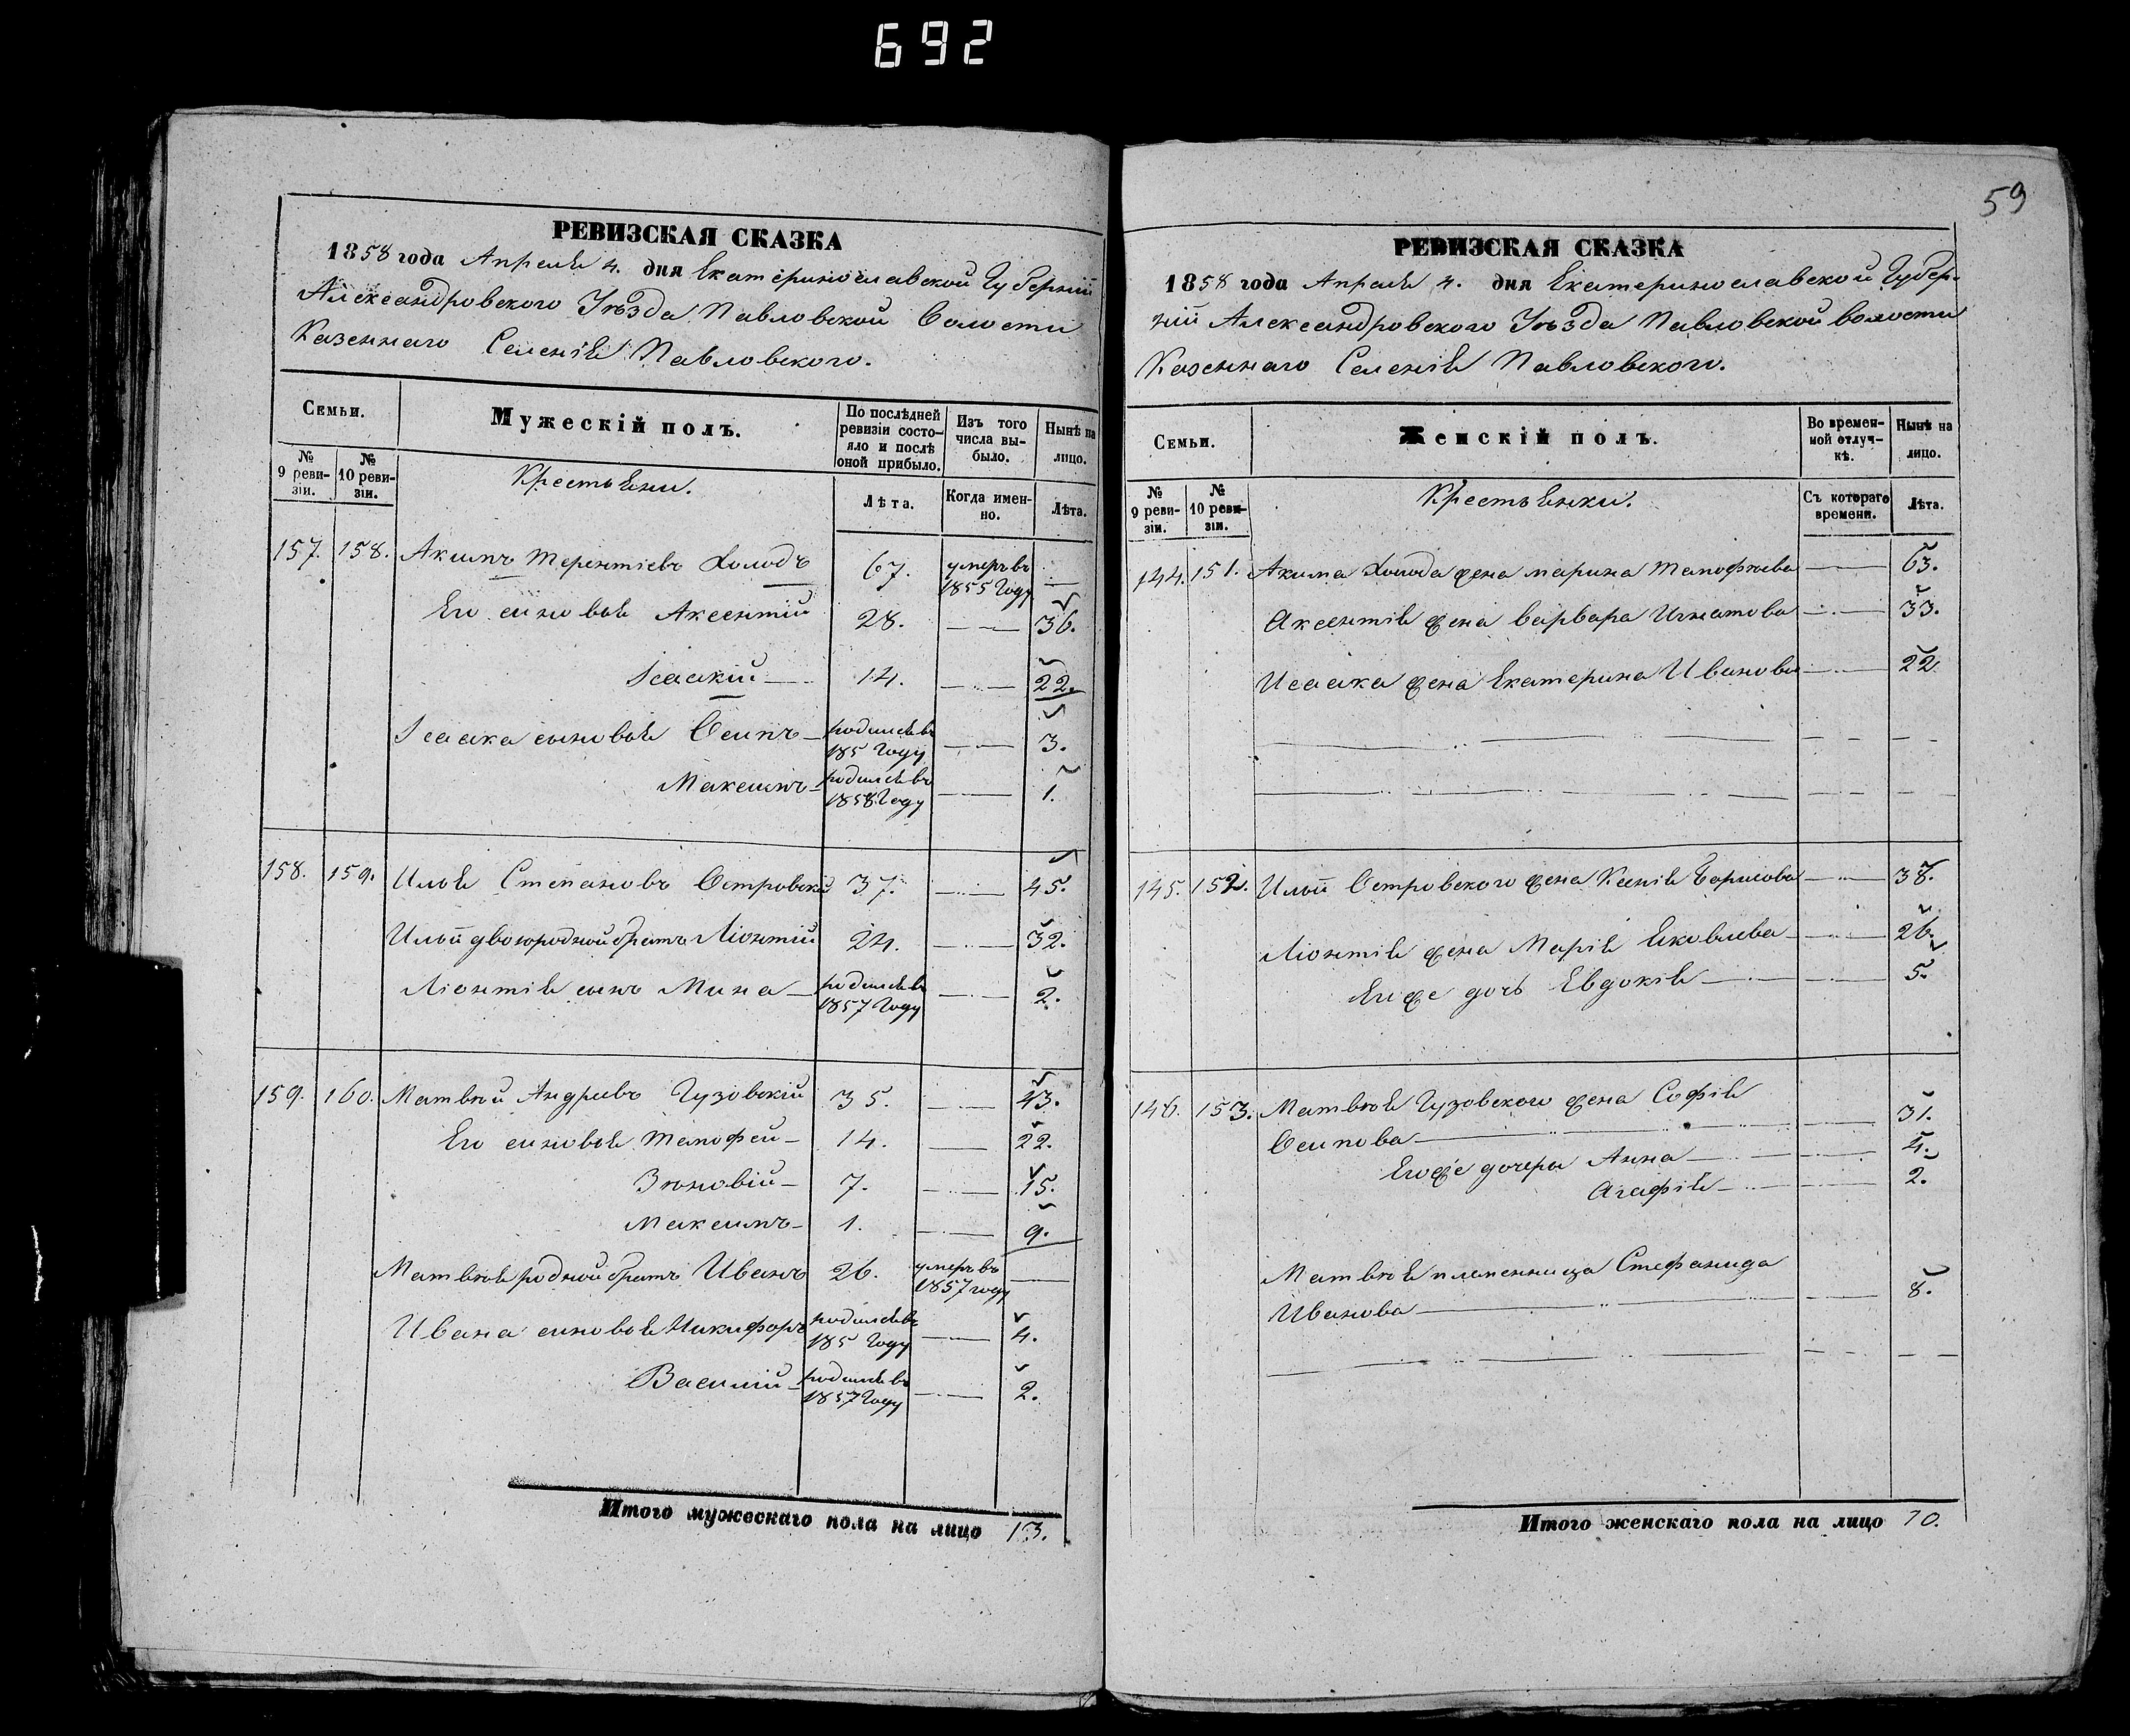 692
РЕВИЗСКАЯ СКАЗКА
1858 года Апреля 4. дня Екатеринославской Губернии
Александровского Уѣзда Павловской Волости
Казеннаго Селенія Павловского.
Семьи.
Мужескій полъ.
По послѣдней ревизіи состо-яло и послѣ оной прибыло.
Изъ того числа вы-было.
Нынѣ на лицо.
№ 9 реви-зіи.
№ 10 реви-зіи.
Крестьяни.
Лѣта.
Когда имен-но.
Лѣта.
157. 158. Акимъ Терентіевъ Холодъ 67. умеръ въ 1855 Году —
Его синовья Аксентій 28. — 36.
Ісаакій 14. — 22.
Ісаака сыновья Осипъ родился въ 185 Году — 3.
Максимъ родился въ 1858 Году — 1.
158. 159. Илья Степановъ Островскій 37. — 45.
Ильи двоюродной братъ Ліонтій 24. — 32.
Ліонтія синъ Мина родился въ 1857 Году — 2.
159. 160. Матвей Андреевъ Гузовскій 35. — 43.
Его синовья Тимофей 14. — 22.
Зѣновій 7. — 15.
Максимъ 1. — 9.
Матвея родной братъ Иванъ 26. умеръ въ 1857 году —
Ивана синовья Никифоръ родился въ 185 Году — 4.
Василій родился въ 1857 Году — 2.
Итого мужескаго пола на лицо 13.
59
РЕВИЗСКАЯ СКАЗКА
1858 года Апреля 4. дня Екатеринославской Губер-
ніи Александровского Уѣзда Павловской волости
Казеннаго Селенія Павловского.
Семьи.
Женскій полъ.
Во времен-ной отлуч-кѣ.
Нынѣ на лицо.
№ 9 реви-зіи.
№ 10 реви-зіи.
Крестьянки.
Съ котораго времени.
Лѣта.
144. 151. Акима Холода жена Марина Тимофѣева — 63.
Аксентія жена Варвара Игнатова — 33.
Исаака жена Екатерина Иванова — 22
145. 152. Ильи Островского жена Ксенія Борисова — 38.
Ліонтія жена Марія Яковлева — 26.
Его же дочь Евдокія — 5.
146. 153. Матвея Гузовского жена Софія
Осипова — 31.
Его же дочери Анна — 4.
Агафія — 2.
Матвея племенница Стефанида
Иванова — 8.
Итого женскаго пола на лицо 10.